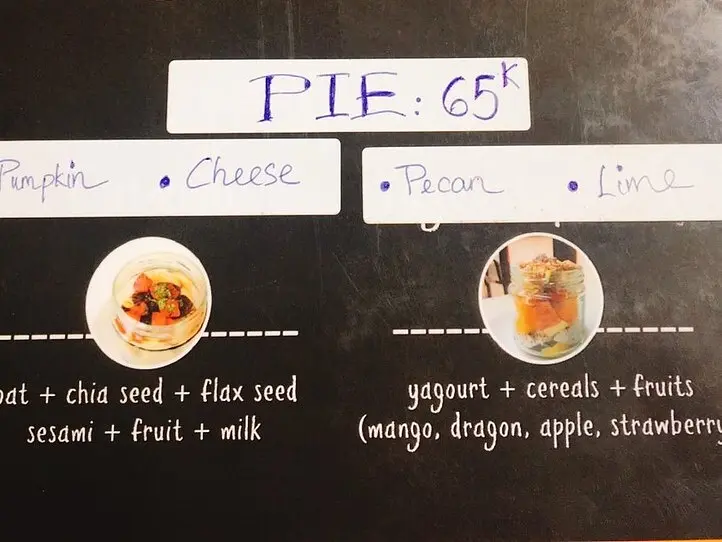 PIE: 65K
Pumpkin • Cheese
• Pecan • Lime
oat + chia seed + flax seed
sesami + fruit + milk
yagourt + cereals + fruits
(mango, dragon, apple, strawberry